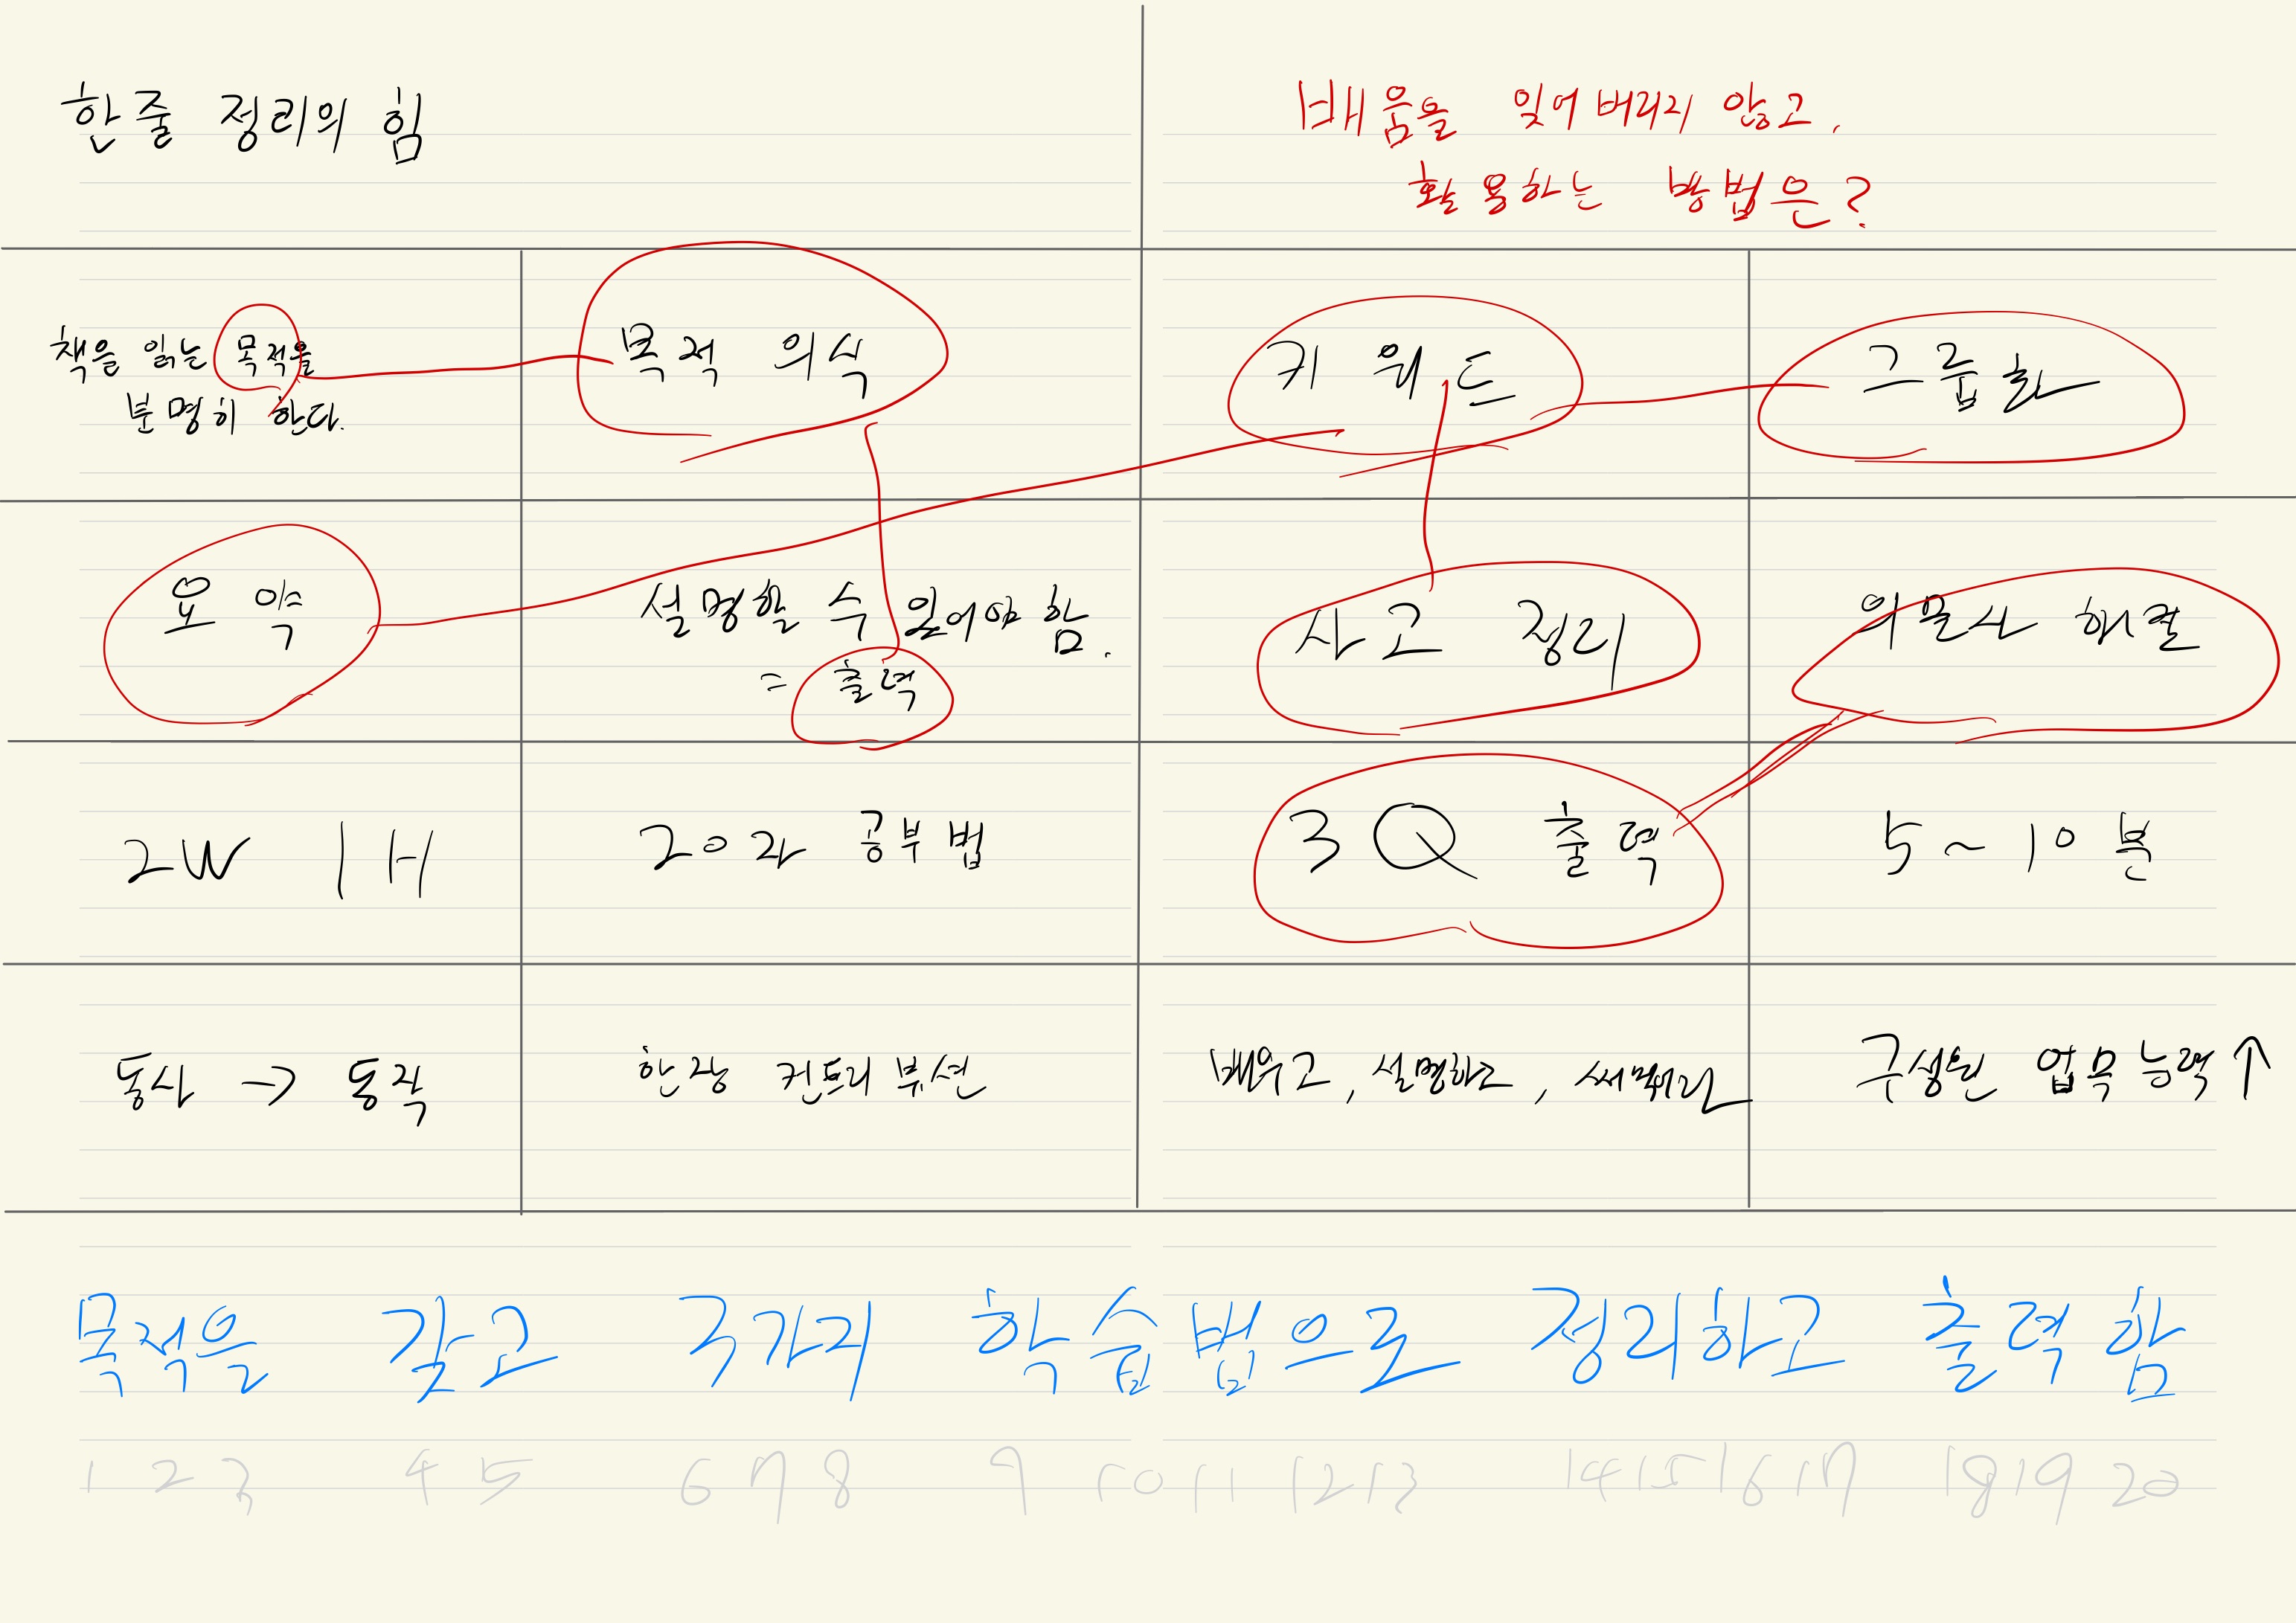 한줄 정리의 힘
배움을 잊어버리지 않고,
활용하는 방법은?
책을 읽는 목적을
분명히 한다.
목적 의식
키워드
그룹화
요약
설명할 수 있어야 함.
= 출력
사고 정리
의문사 해결
2W 1H
20자 공부법
3Q 출력
5~10분
동사 → 동작
한장 컨트리뷰션
배우고, 설명하고,
구성원 업무능력↑
목적을 갖고 3가지 학습법으로 정리하고 출력함
1 2 3 4 5 6 7 8 9 10 11 12 13 14 15 16 17 18 19 20